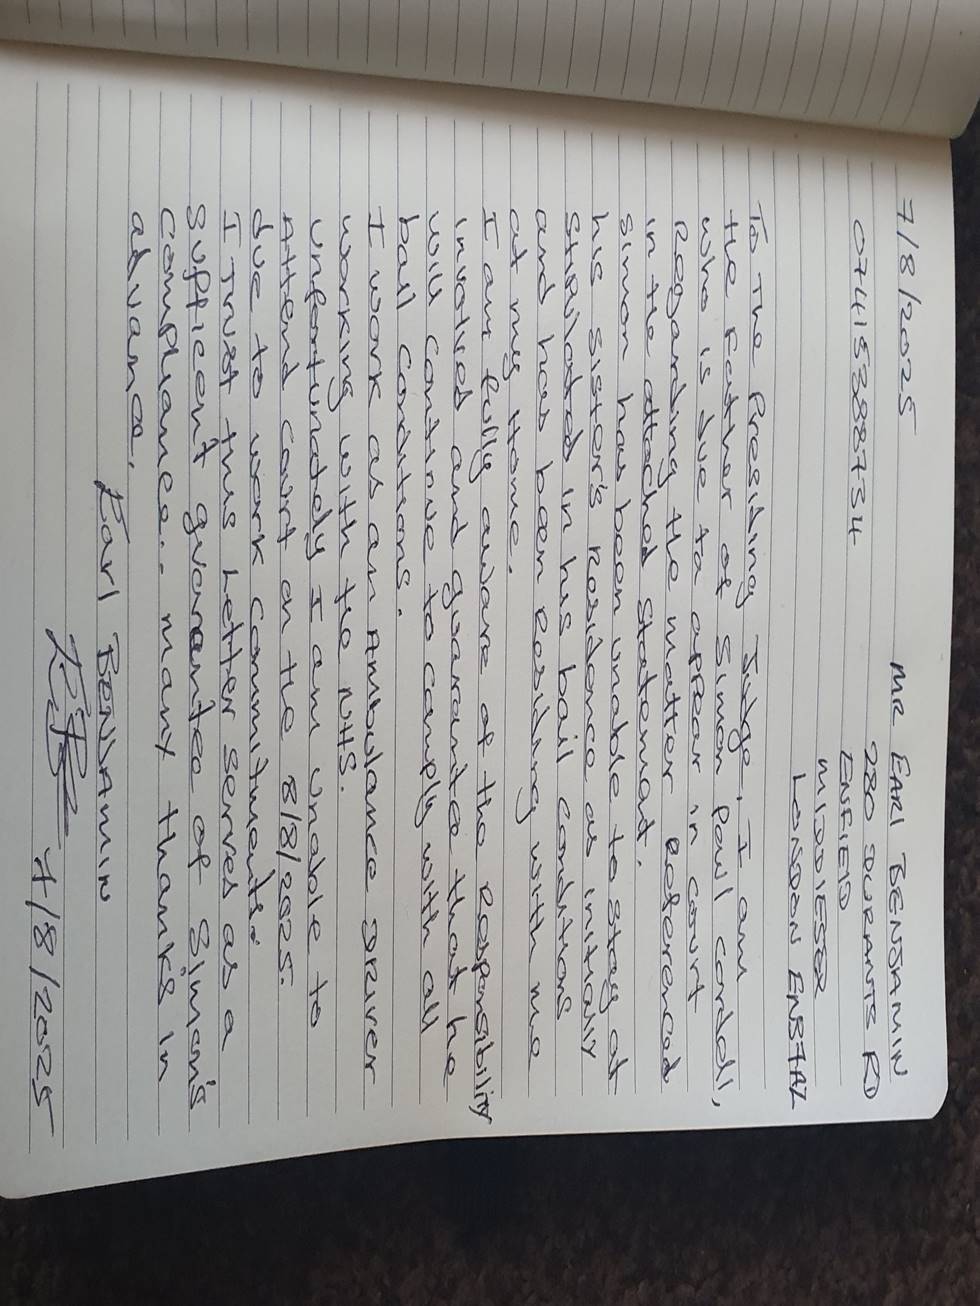 7/8/2025
MR EARL BENJAMIN
07415388734
280 DURANTS RD
ENFIELD
MIDDLESEX
LONDON EN37AZ
To The Presiding Judge, I am
the Father of Simon Paul Cordell,
who is due to appear in court
Regarding the matter Referenced
in the attached statement.
Simon has been unable to stay at
his sister's Residence as initially
Stipilated in his bail conditions
and has been Residing with me
at my Home.
I am fully aware of the Responsibility
involved and guarantee that he
will continue to comply with all
bail conditions.
I work as an AMBULANCE DRIVER
working with the NHS.
unfortunately I am unable to
Attend court on the 8/8/2025.
due to work commitments.
I Trust this Letter Serves as a
Sufficent guarantee of Simon's
compliance.. many thanks in
advance.
Earl BENJAMIN
7/8/2025